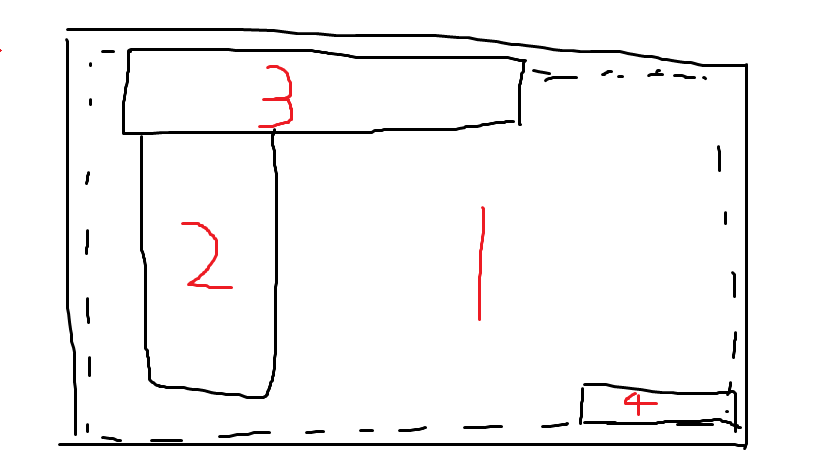 3
2
1
4